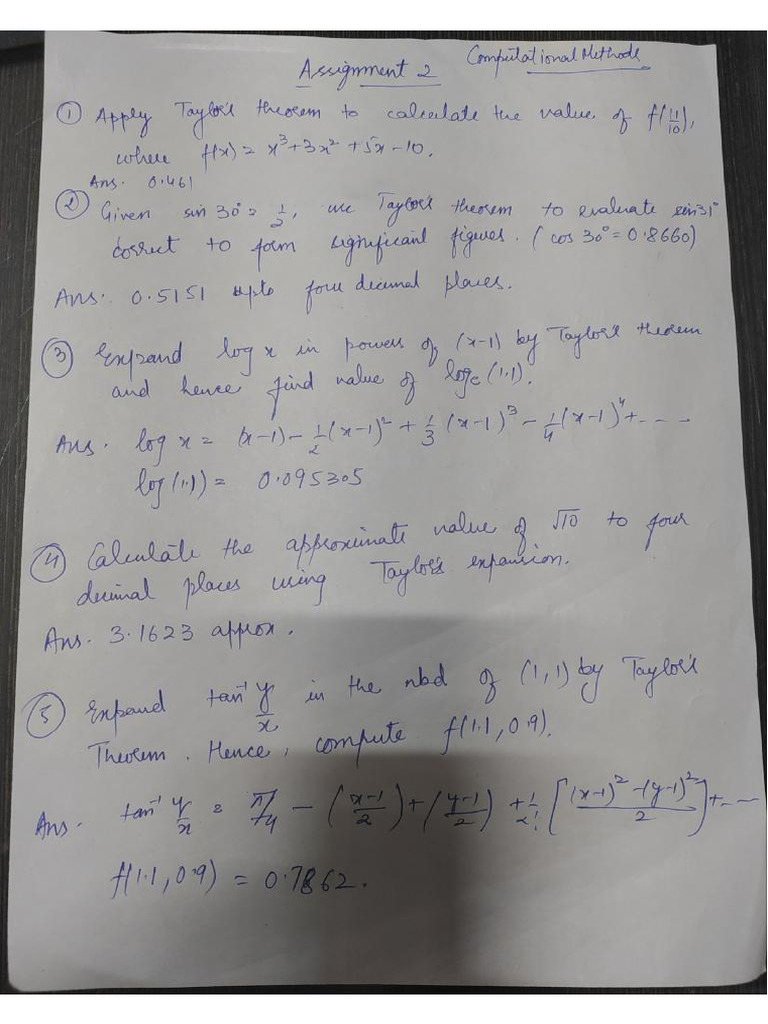 Assignment 2 Computational Methods
① Apply Taylor's theorem to calculate the value of f(11/10),
where f(x) = x³+3x²+5x-10.
Ans. 0.461
② Given sin 30° = 1/2, use Taylor's theorem to evaluate sin 31°
correct to form significant figures. (cos 30° = 0.8660)
Ans. 0.5151 upto four decimal places.
③ Expand log x in powers of (x-1) by Taylor's theorem
and hence find value of logₑ(1.1).
Ans. log x = (x-1) - 1/2(x-1)² + 1/3(x-1)³ - 1/4(x-1)⁴ + ----
log(1.1) = 0.095305
④ Calculate the approximate value of √10 to four
decimal places using Taylor's expansion.
Ans. 3.1623 approx.
⑤ Expand tan⁻¹ y/x in the nbd of (1,1) by Taylor's
Theorem. Hence, compute f(1.1, 0.9).
Ans. tan⁻¹ y/x = π/4 - ((x-1)/2) + ((y-1)/2) + 1/2! [((x-1)² - (y-1)²)/2] + ----
f(1.1, 0.9) = 0.7862.